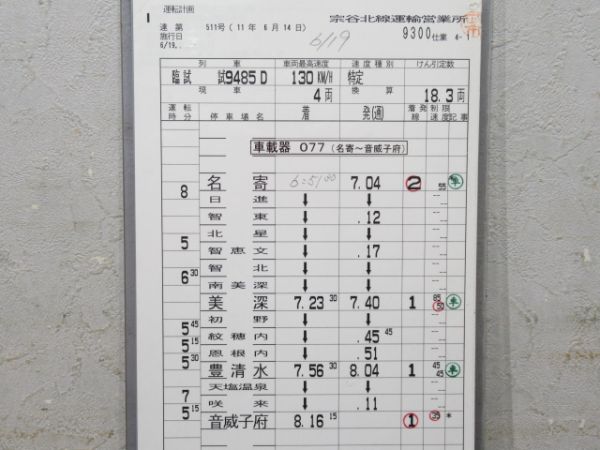 運転計画
宗谷北線運輸営業所
達第 511号(11年 6月14日)
施行日
6/19..
6/19
9300仕業 4-1
列車 車両最高速度 速度種別 けん引定数
臨試 試9485D 130KM/H 特定
現車 4両 換算 18.3両
運転時分 停車場名 着 発(通) 着発線 制限速度 記事
車載器 077 (名寄~音威子府)
名寄 6:51 30 7.04 2 車
8
日進 ↓ ↓
智東 ↓ .12
北星 ↓ ↓
5
智恵文 ↓ .17
智北 ↓ ↓
6 30
南美深 ↓ ↓
美深 7.23 30 7.40 1 85 50 車
初野 ↓ ↓
5 45
紋穂内 ↓ .45 45
5 15
恩根内 ↓ .51
5 30
豊清水 7.56 30 8.04 1 45 45 車
天塩温泉 ↓ ↓
7
咲来 ↓ .11
5 15
音威子府 8.16 15 1 35 *